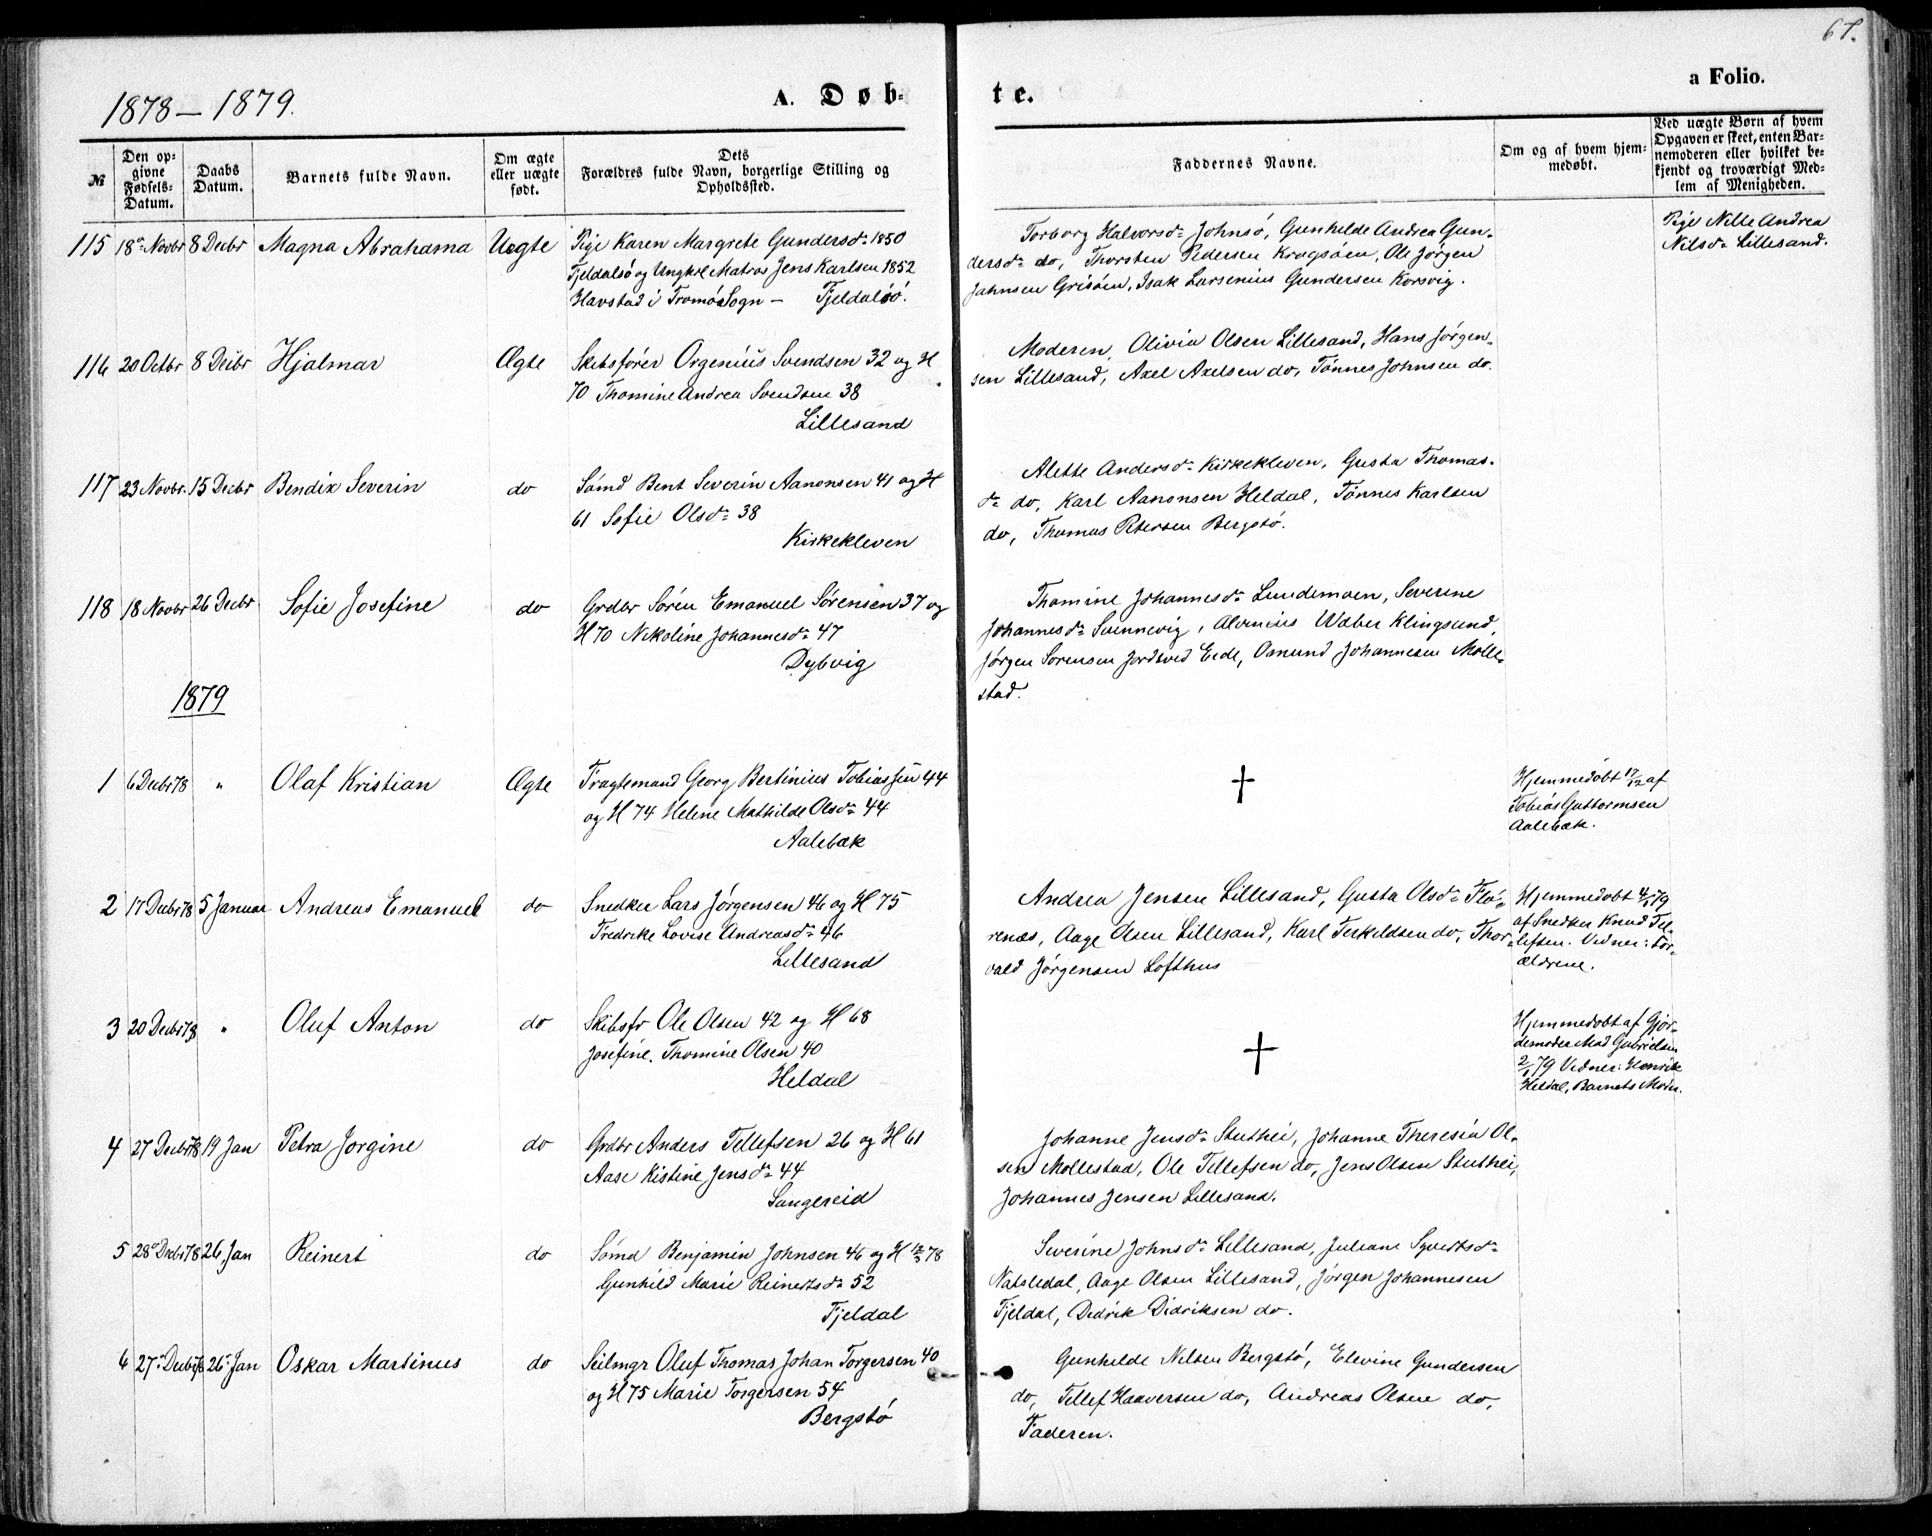 67.
1878–1879.
A. Døb-
te.
a Folio.
№
Den op-
givne
Fødsels-
Datum.
Daabs
Datum.
Barnets fulde Navn.
Om ægte
eller uægte
født.
Dets
Forældres fulde Navn, borgerlige Stilling og
Opholdssted.
Faddernes Navne.
Om og af hvem hjem-
medøbt.
Ved uægte Børn af hvem
Opgaven er skeet, enten Bar-
nemoderen eller hvilket be-
kjendt og troværdigt Med-
lem af Menigheden.
115 18de Novbr 8 Decbr Magna Abrahama Uægte
Pige Karen Margrete Gundersdr 1850
Fjeldalsø og Ungkrl Matros Jens Karlsen 1852
Havstad i Tromø Sogn – Fjeldalsø.
Torborg Halvorsdr Johnsö, Gunhilde Andrea Gun-
dersdr do, Thorsten Pedersen Krogsöen, Ole Jörgen
Jahnsen Grisöen, Isak Larsenius Gundersen Korsvig.
Pige Nille Andrea
Nilsdr Lillesand.
116 20 Octbr 8 Decbr Hjalmar Ægte
Skibsfører Orgenius Svendsen 32 og H
70 Thomine Andrea Svendsen 38
Lillesand
Moderen, Olivia Olsen Lillesand, Hans Jørgen-
sen Lillesand, Axel Axelsen do, Tønnes Johnsen do.
117 23 Novbr. 15 Decbr Bendix Severin do
Sømd Bent Severin Aanonsen 41 og H
61 Sofie Olsdr 38
Kirkekleven
Alette Andersdr Kirkekleven, Gusta Thomas-
dr do, Karl Aanonsen Heldal, Tønnes Karlsen
do, Thomas Petersen Bergstø.
118 18 Novbr 26 Decbr Sofie Josefine do
Grdbr Sören Emanuel Sørensen 37 og
H 70 Nikoline Johannesdr 47
Dybvig
Thomine Johannesdr Lundemoen, Severine
Johannesdr Svennevig, Alvenius Waber Klingsund,
Jørgen Sørensen Jordsved Eide, Osmund Johannesen Molle-
stad.
1879
1 6 Decbr 78 " Olaf Kristian Ægte
Fragtemand Georg Bertinius Tobiassen 44
og H 74 Helene Mathilde Olsdr 44
Aalebæk
†
Hjemmedøbt 17/12 af
Tobias Guttormsen
Aalebæk.
2 17 Decbr 78 5 Januar Andreas Emanuel do
Snedker Lars Jørgensen 46 og H 75
Fredrike Lovise Andreasdr 46
Lillesand
Andrea Jensen Lillesand, Gusta Olsdr Flø-
renæs, Aage Olsen Lillesand, Karl Terkildsen do, Thor-
vald Jørgensen Lofthus
Hjemmedøbt 4/1 79
af Snedker Knud Tel-
lefsen. Vidner: For-
ældrene.
3 20 Decbr 78 " Oluf Anton do
Skibsfr Ole Olsen 42 og H 68
Josefine Thomine Olsen 40
Heldal
†
Hjemmedøbt af Gjor-
demoder Mad Gabrielsen
2/1 79 Vidner: Henrik
Heldal, Barnets Moder.
4 27 Decbr 78 19 Jan Petra Jorgine do
Grdbr Anders Tellefsen 26 og H 61
Aase Kistine Jensdr 44
Sangereid
Johanne Jensdr Stuthei, Johanne Theresia Ol-
sen Mollestad, Ole Tellefsen do, Jens Olsen Stuthei,
Johannes Jensen Lillesand.
5 28de Decbr 78 26 Jan Reinert do
Sømd Benjamin Johnsen 46 og H 78
Gunhild Marie Reinertsdr 52
Fjeldal
Severine Johnsdr Lillesand, Juliane Syvertsdr
Natsledal, Aage Olsen Lillesand, Jørgen Johannesen
Fjeldal, Didrik Didriksen do.
6 27de Decbr 78 26de Jan Oskar Martinus do
Seilmgr Oluf Thomas Johan Torgersen 40
og H 75 Marie Torgersen 54
Bergstø
Gunhilde Nilsen Bergstø, Elevine Gundersen
do, Tellef Haaversen do, Andreas Olsen do,
Faderen.